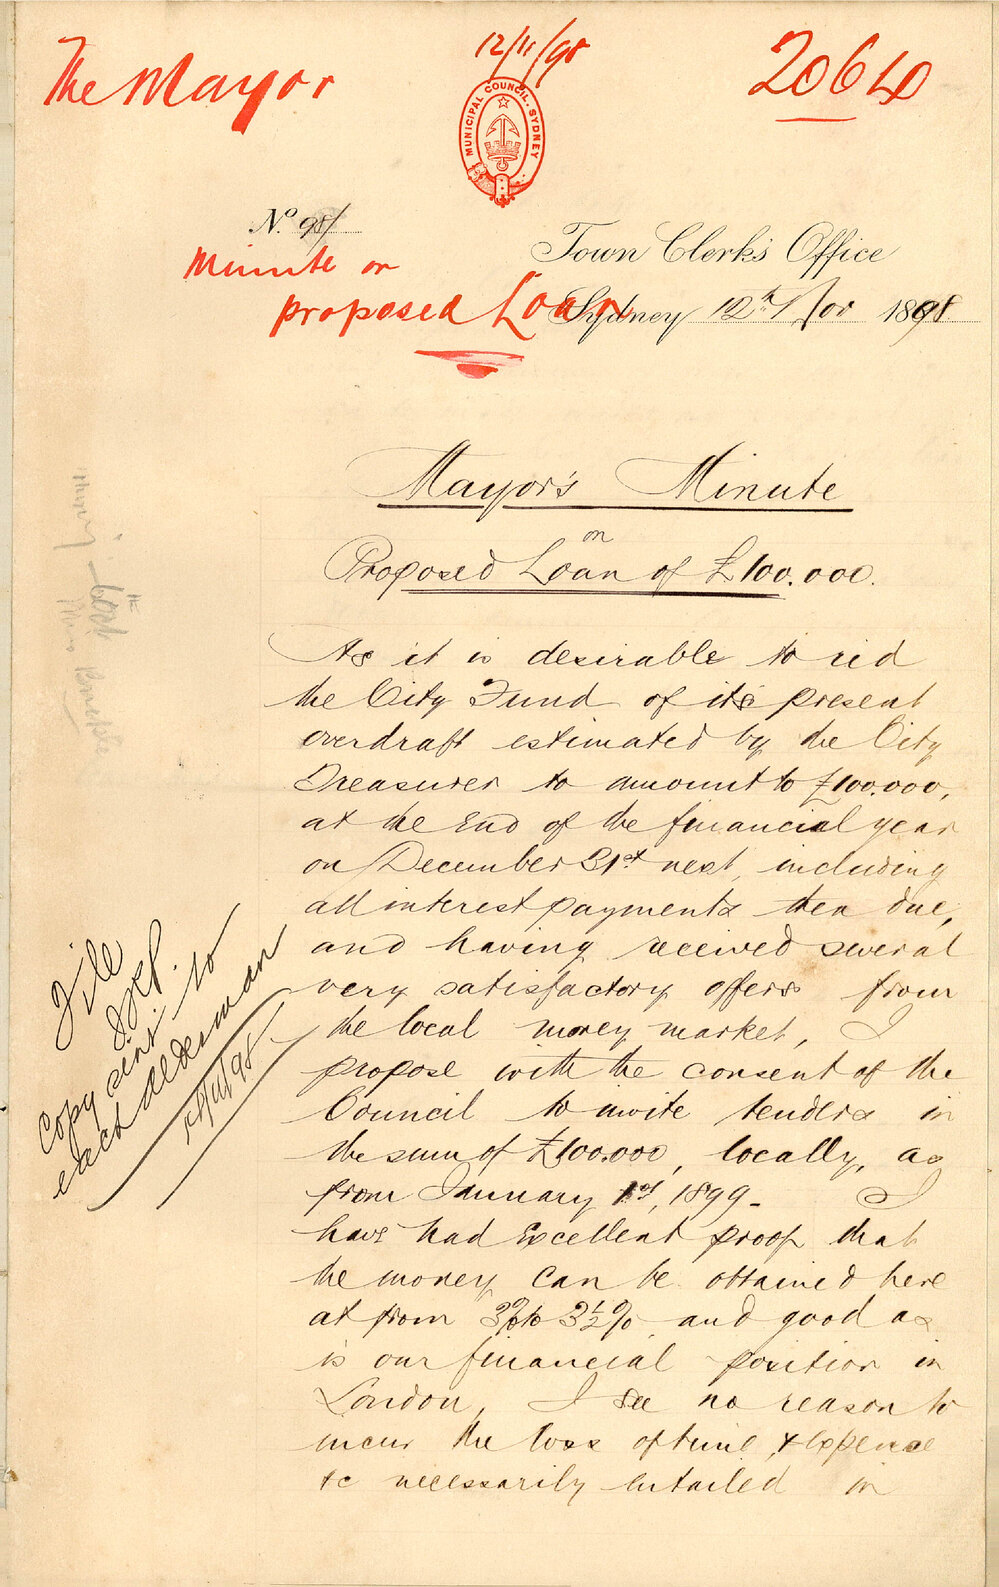 The Mayor
12/11/98
2064
MUNICIPAL COUNCIL. SYDNEY
No. 98/
Town Clerk's Office
Minute on
proposed Loan
Sydney 12th Nov 1898
Mayor's Minute
on
Proposed Loan of £100.000.
As it is desirable to rid
the City Fund of its present
overdraft estimated by the City
Treasurer to amount to £100.000,
at the end of the financial year
on December 31st next, including
all interest payments then due,
and having received several
very satisfactory offers from
the local money market, I
propose with the consent of the
Council to invite tenders in
the sum of £100.000, locally, as
from January 1st, 1899. I
have had excellent proof that
the money can be obtained here
at from 3% to 3½%, and good as
is our financial position in
London, I see no reason to
incur the loss of time, & expense
&c necessarily entailed in
File
Copy sent to
each alderman